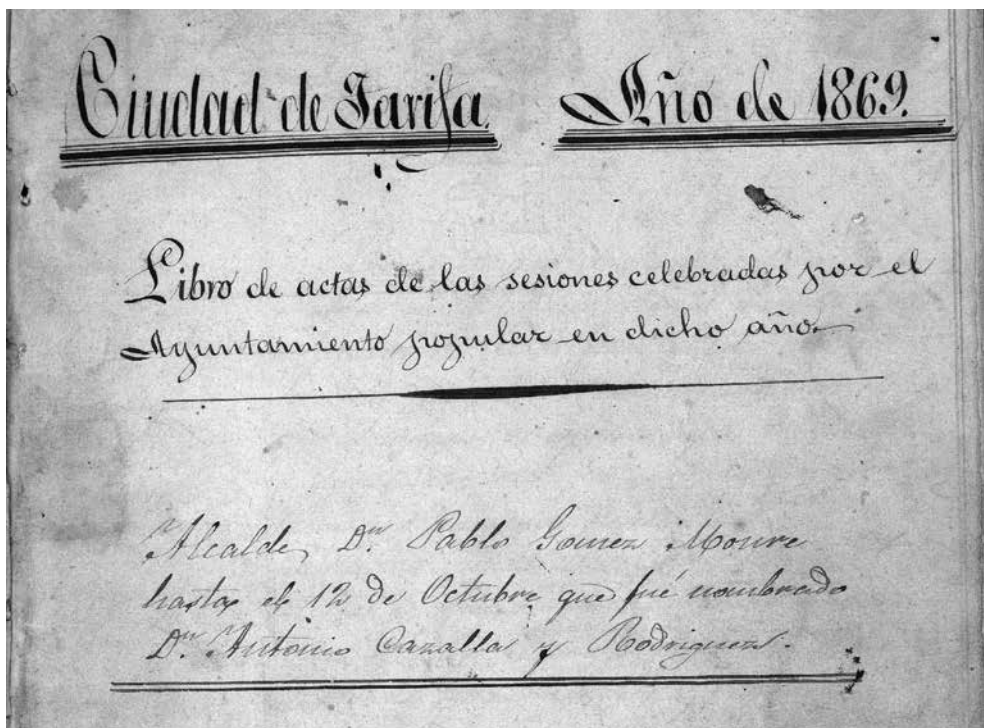 Ciudad de Tarifa Año de 1869.
Libro de actas de las sesiones celebradas por el
Ayuntamiento popular en dicho año.
Alcalde, Dn. Pablo Gomez Moure
hasta el 12 de Octubre que fué nombrado
Dn. Antonio Cazalla y Rodriguez.